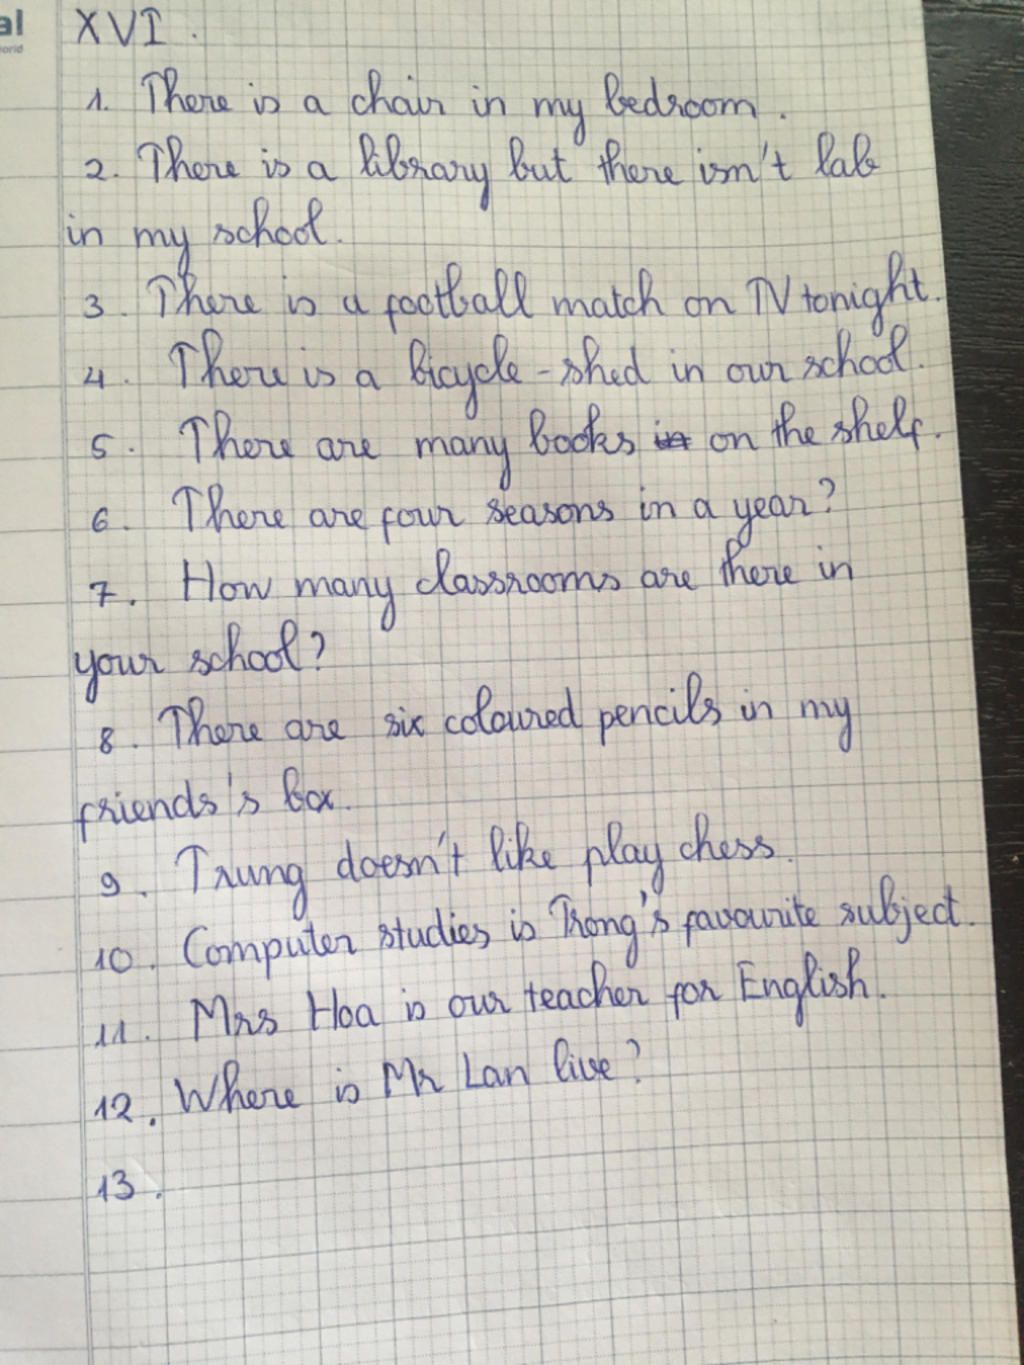 al
orld
XVI.
1. There is a chair in my bedroom.
2. There is a library but there isn't lab
in my school.
3. There is a football match on TV tonight.
4. There is a bicycle-shed in our school.
5. There are many books in on the shelf.
6. There are four seasons in a year?
7. How many classrooms are there in
your school?
8. There are six coloured pencils in my
friends's box.
9. Trung doesn't like play chess.
10. Computer studies is Trong's favourite subject.
11. Mrs Hoa is our teacher for English.
12. Where is Mr Lan live?
13.